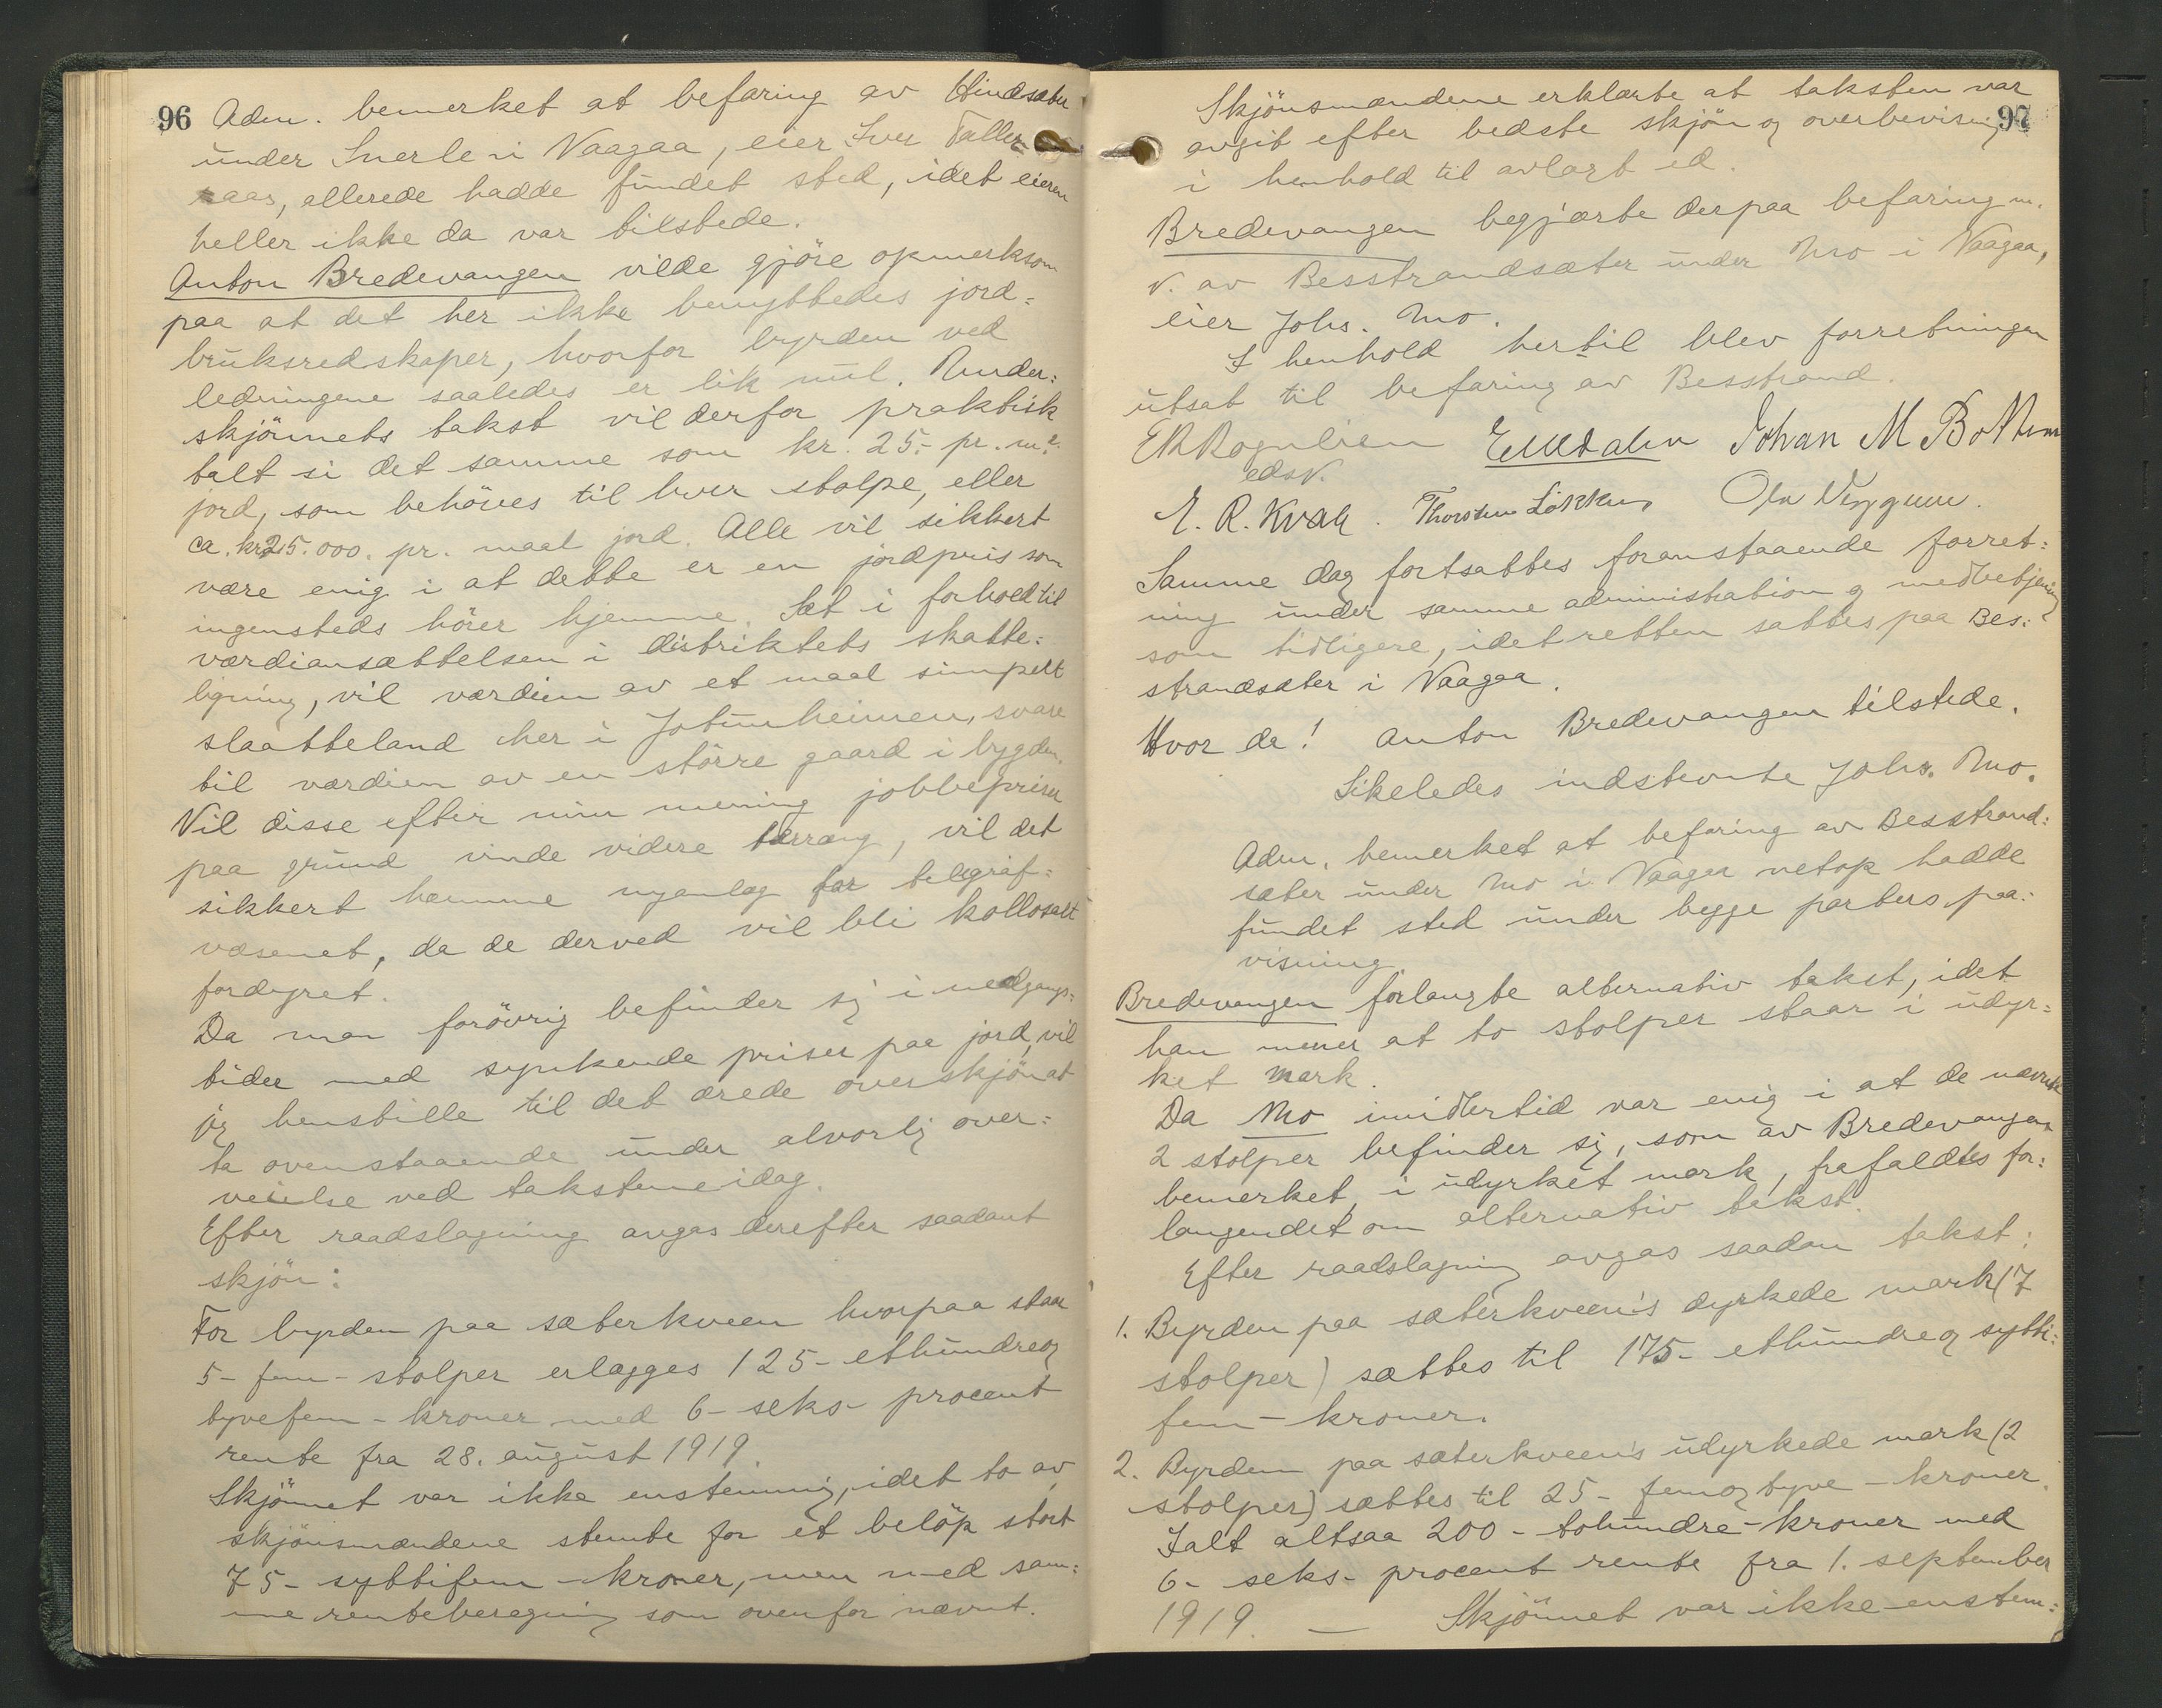 96
Adm. bemerket at befaring av Hindsæter
under Snerle i Vaagaa, eier Iver Taller-
aas, allerede hadde fundet sted, idet eieren
heller ikke da var tilstede.
Anton Bredevangen vilde gjöre opmerksom
paa at det her ikke benyttedes jord=
bruksredskaper, hvorfor byrden ved
ledningene saaledes er lik nul. Under=
skjönnets takst vil derfor praktisk
talt si det samme som kr. 25.- pr. m².
jord, som behöves til hver stolpe, eller
ca. kr 25.000. pr. maal jord. Alle vil sikkert
være enig i at dette er en jordpris som
ingensteds hörer hjemme. Sat i forhold til
værdiansættelsen i distriktets skatte=
ligning, vil værdien av et maal simpelt
slaatteland her i Jotunheimen, svare
til værdien av en större gaard i bygden.
Vil disse efter min mening jobbepriser
paa grund vinde videre terræng, vil det
sikkert hæmme nyanlæg for telegraf=
væsenet, da de derved vil bli kollosalt
fordyret.
Da man forövrig befinder sig i nedgangs=
tider med synkende priser paa jord, vil
jeg henstille til det ærede overskjön at
ta ovenstaaende under alvorlig over=
veielse ved takstene idag.
Efter raadslagning avgas derefter saadant
skjön:
For byrden paa sæterkveen hvorpaa staar
5 - fem - stolper erlægges 125 - ethundreog
tyvefem - kroner med 6 - seks - procent
rente fra 28. august 1919.
Skjönnet var ikke enstemmig, idet to av
skjönsmændene stemte for et belöp stort
75 - syttifem - kroner, men med sam=
me renteberegning som ovenfor nævnt.
97
Skjönsmændene erklærte at taksten var
avgit efter bedste skjön og overbevisning
i henhold til avlagt ed.
Bredevangen begjærte derpaa befaring m.
v. av Besstrandsæter under Mo i Vaagaa,
eier Johs. Mo.
I henhold hertil blev forretningen
utsat til befaring av Besstrand.
E R Rognlien Johan M Bottem
edsv.
E. R. Kvale. Thorstein Lökken Ola Veggum.
Samme dag fortsattes foranstaaende forret=
ning under samme administration og medbetjening
som tidligere, idet retten sattes paa Bes=
strandsæter i Vaagaa.
Hvor da! Anton Bredevangen tilstede.
Likeledes indstevnte Johs. Mo.
Adm. bemerket at befaring av Besstrand=
sæter under Mo i Vaagaa netop hadde
fundet sted under begge parters paa=
visning.
Bredevangen forlangte alternativ takst, idet
han mener at to stolper staar i udyr=
ket mark.
Da Mo imidlertid var enig i at de nævnte
2 stolper befinder sig, som av Bredevangen
bemerket, i udyrket mark, frafaldtes for=
langendet om alternativ takst.
Efter raadslagning avgas saadan takst:
1. Byrden paa sæterkveen's dyrkede mark (7
stolper) sættes til 175 - ethundreog sytti=
fem - kroner.
2. Byrden paa sæterkveen's udyrkede mark (2
stolper) sættes til 25 - femogtyve - kroner.
Ialt altsaa 200 - tohundre - kroner med
6 - seks - procent rente fra 1. september
1919. — Skjönnet var ikke enstem=